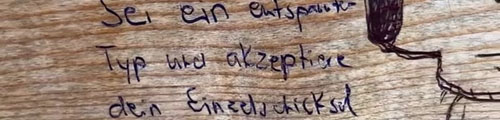 Sei ein entspannter
Typ und akzeptiere
dein Einzelschicksal